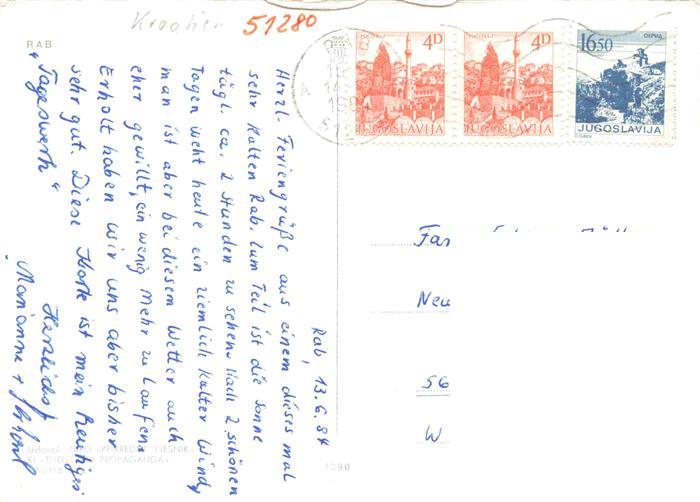 Kroatien 51280
RAB
4D
POČITELJ
JUGOSLAVIJA
4D
POČITELJ
JUGOSLAVIJA
16,50
OHRID
JUGOSLAVIJA
Rab, 13.6.84
Herzl. Feriengrüße aus einem dieses mal
sehr kalten Rab. Zum Teil ist die Sonne
tägl. ca. 2 Stunden zu sehen. Nach 2 schönen
Tagen weht heute ein ziemlich kalter Wind,
man ist aber bei diesem Wetter auch
eher gewillt, ein wenig mehr zu laufen.
Erholt haben wir uns aber bisher
sehr gut. Diese Karte ist mein heutiges
"Tageswerk"
Herzlichst
Marianne +
Fa
Neu
56
W
Izdavač: NIRO »PRIVREDNI VJESNIK«
PROPAGANDA«
1090